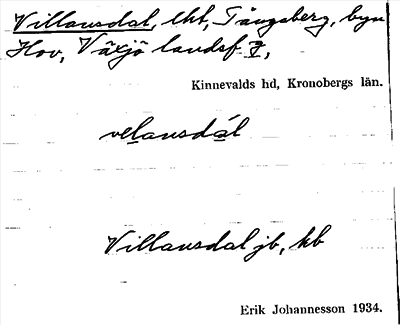 Villansdal, lht, Tångsberg, byn
Hov, Växjö landsf 7,
Kinnevalds hd, Kronobergs län.
velansdál
Villansdal jb, kb
Erik Johannesson 1934.